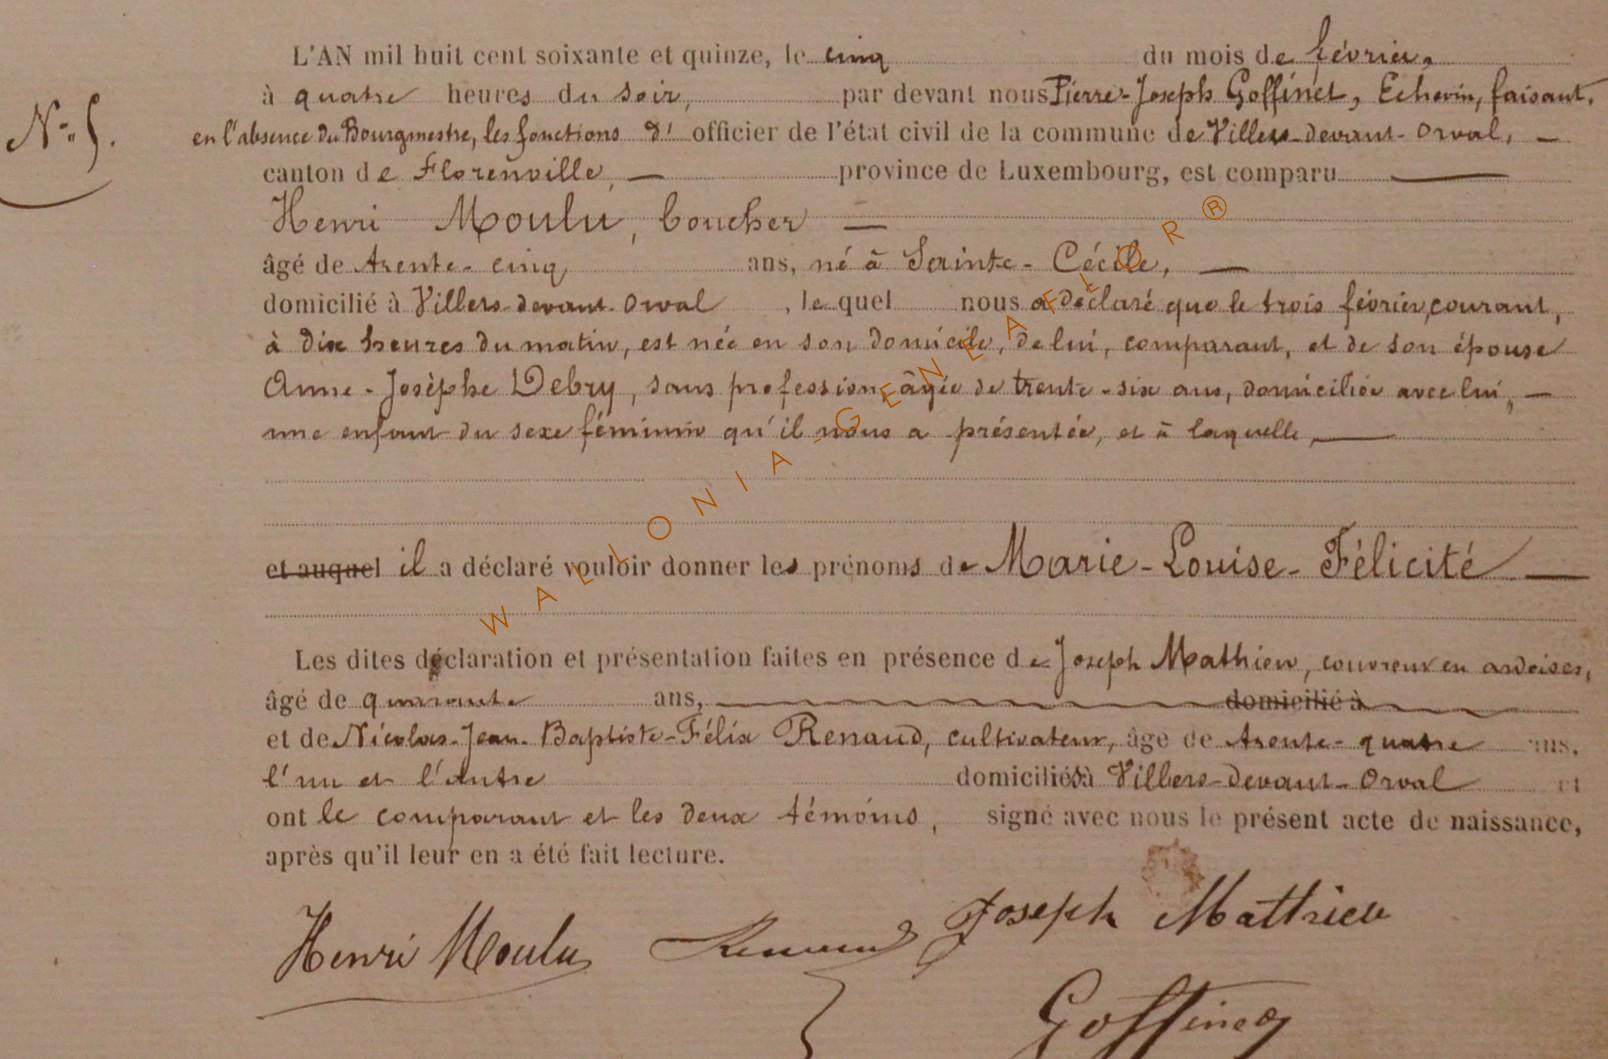 N° 5.
L'AN mil huit cent soixante et quinze, le cinq du mois de février,
à quatre heures du soir, par devant nous Pierre-Joseph Goffinet, Echevin, faisant,
en l'absence du Bourgmestre, les fonctions d' officier de l'état civil de la commune de Villers-devant-Orval, —
canton de Florenville, — province de Luxembourg, est comparu —
Henri Moulu, boucher —
âgé de trente-cinq ans, né à Sainte-Cécile, —
domicilié à Villers-devant-Orval , lequel nous a déclaré que le trois février, courant,
à dix heures du matin, est née en son domicile, de lui, comparant, et de son épouse
Anne-Josèphe Debry, sans profession, âgée de trente-six ans, domiciliée avec lui, —
une enfant du sexe féminin qu'il nous a présentée, et à laquelle, —
et auquel il a déclaré vouloir donner les prénoms de Marie-Louise-Félicité —
Les dites déclaration et présentation faites en présence de Joseph Mathieu, couvreur en ardoises,
âgé de quarante ans, domicilié à
et de Nicolas-Jean-Baptiste-Félix Renaud, cultivateur, âgé de trente-quatre ans,
l'un et l'autre domiciliés à Villers-devant-Orval et
ont le comparant et les deux témoins, signé avec nous le présent acte de naissance,
après qu'il leur en a été fait lecture.
Henri Moulu Renaud Joseph Mathieu
Goffinet
WALLONIA-GENEAFLOR®